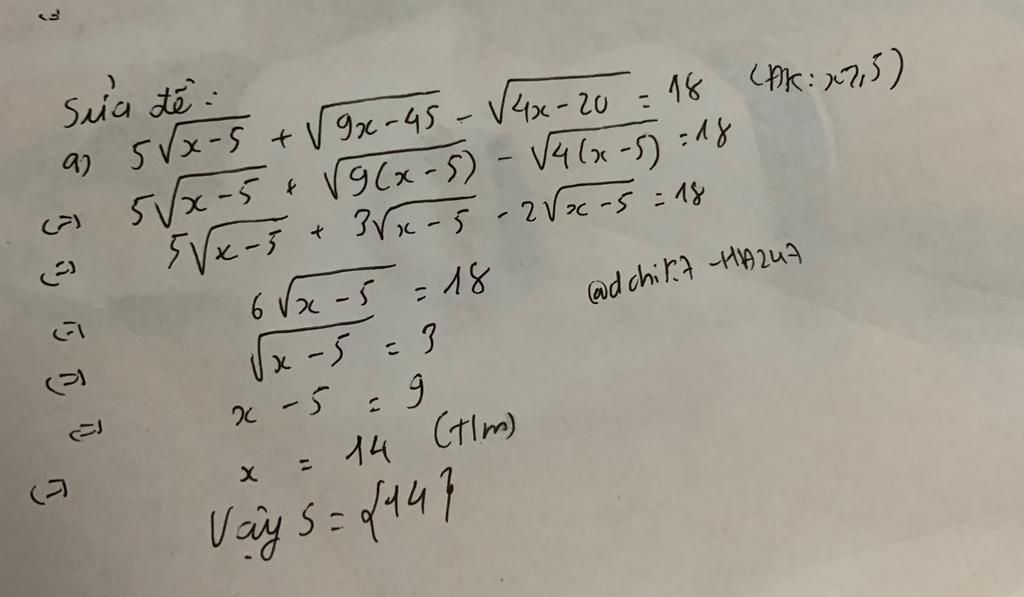 Sửa đề:
a) 5√x-5 + √9x-45 - √4x-20 = 18 (ĐK: x≥5)
(=) 5√x-5 + √9(x-5) - √4(x-5) = 18
(=) 5√x-5 + 3√x-5 - 2√x-5 = 18
(=) 6√x-5 = 18
@dchir.7 -HA247
(=) √x-5 = 3
(=) x-5 = 9
(=) x = 14 (t/m)
Vậy S = {14}